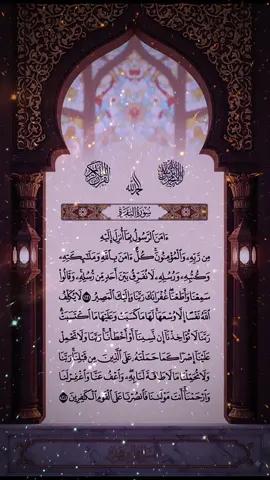 الحمد لله
سورة البقرة
ءَامَنَ ٱلرَّسُولُ بِمَآ أُنزِلَ إِلَيْهِ
مِن رَّبِّهِۦ وَٱلْمُؤْمِنُونَ كُلٌّ ءَامَنَ بِٱللَّهِ وَمَلَٰٓئِكَتِهِۦ
وَكُتُبِهِۦ وَرُسُلِهِۦ لَا نُفَرِّقُ بَيْنَ أَحَدٍ مِّن رُّسُلِهِۦ وَقَالُوا۟
سَمِعْنَا وَأَطَعْنَا غُفْرَانَكَ رَبَّنَا وَإِلَيْكَ ٱلْمَصِيرُ ٢٨٥ لَا يُكَلِّفُ
ٱللَّهُ نَفْسًا إِلَّا وُسْعَهَا لَهَا مَا كَسَبَتْ وَعَلَيْهَا مَا ٱكْتَسَبَتْ
رَبَّنَا لَا تُؤَاخِذْنَآ إِن نَّسِينَآ أَوْ أَخْطَأْنَا رَبَّنَا وَلَا تَحْمِلْ
عَلَيْنَآ إِصْرًا كَمَا حَمَلْتَهُۥ عَلَى ٱلَّذِينَ مِن قَبْلِنَا رَبَّنَا
وَلَا تُحَمِّلْنَا مَا لَا طَاقَةَ لَنَا بِهِۦ وَٱعْفُ عَنَّا وَٱغْفِرْ لَنَا
وَٱرْحَمْنَآ أَنتَ مَوْلَىٰنَا فَٱنصُرْنَا عَلَى ٱلْقَوْمِ ٱلْكَٰفِرِينَ ٢٨٦